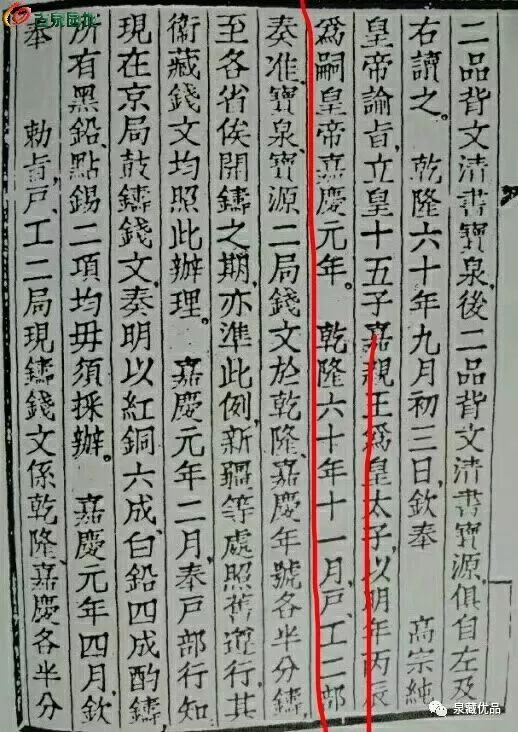 二品背文清書寶泉,後二品背文清書寶源,俱自左及
右讀之。 乾隆六十年九月初三日,欽奉 高宗純
皇帝諭旨,立皇十五子嘉親王爲皇太子,以明年丙辰
爲嗣皇帝嘉慶元年。 乾隆六十年十一月,戶、工二部
奏准,寶泉、寶源二局錢文於乾隆、嘉慶年號各半分鑄,
至各省俟開鑄之期,亦準此例,新疆等處照舊遵行,其
衛藏錢文均照此辦理。 嘉慶元年二月,奉戶部行知,
現在京局鼓鑄錢文,奏明以紅銅六成,白鉛四成酌鑄,
所有黑鉛、點錫二項均毋須採辦。 嘉慶元年四月,欽
奉 勅旨,戶、工二局現鑄錢文係乾隆、嘉慶各半分
泉藏优品